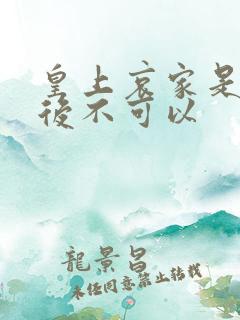 皇上哀家是
後不可以
龍景昌
未任同意禁止转载